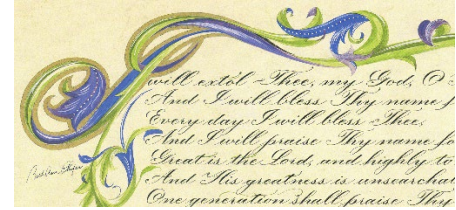 will extol Thee, my God, O
And I will bless Thy name f
Every day I will bless Thee.
And I will praise Thy name fo
Great is the Lord, and highly to
And His greatness is unsearchab
One generation shall praise Thy